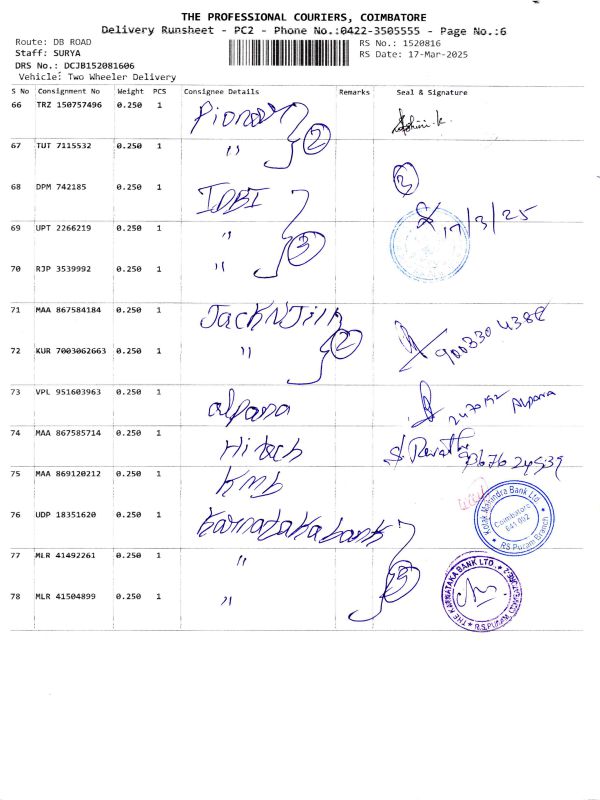 THE PROFESSIONAL COURIERS, COIMBATORE
Delivery Runsheet - PC2 - Phone No.:0422-3505555 - Page No.:6
Route: DB ROAD
RS No.: 1520816
Staff: SURYA
RS Date: 17-Mar-2025
DRS No.: DCJB152081606
Vehicle: Two Wheeler Delivery
S No Consignment No Weight PCS Consignee Details Remarks Seal & Signature
66 TRZ 150757496 0.250 1 Pioneer
67 TUT 7115532 0.250 1 " 2
68 DPM 742185 0.250 1 IDBI 3
69 UPT 2266219 0.250 1 " 17/3/25
70 RJP 3539992 0.250 1 " 3
71 MAA 867584184 0.250 1 JackNJill
72 KUR 7003062663 0.250 1 " 2
73 VPL 951603963 0.250 1 alpana Alpana
74 MAA 867585714 0.250 1 Hitech Revathi
75 MAA 869120212 0.250 1 KMB
76 UDP 18351620 0.250 1 Karnataka bank
Kotak Mahindra Bank Ltd
Coimbatore
641 002
RS Puram Branch
77 MLR 41492261 0.250 1 "
78 MLR 41504899 0.250 1 " 3
THE KARNATAKA BANK LTD
R.S. Puram